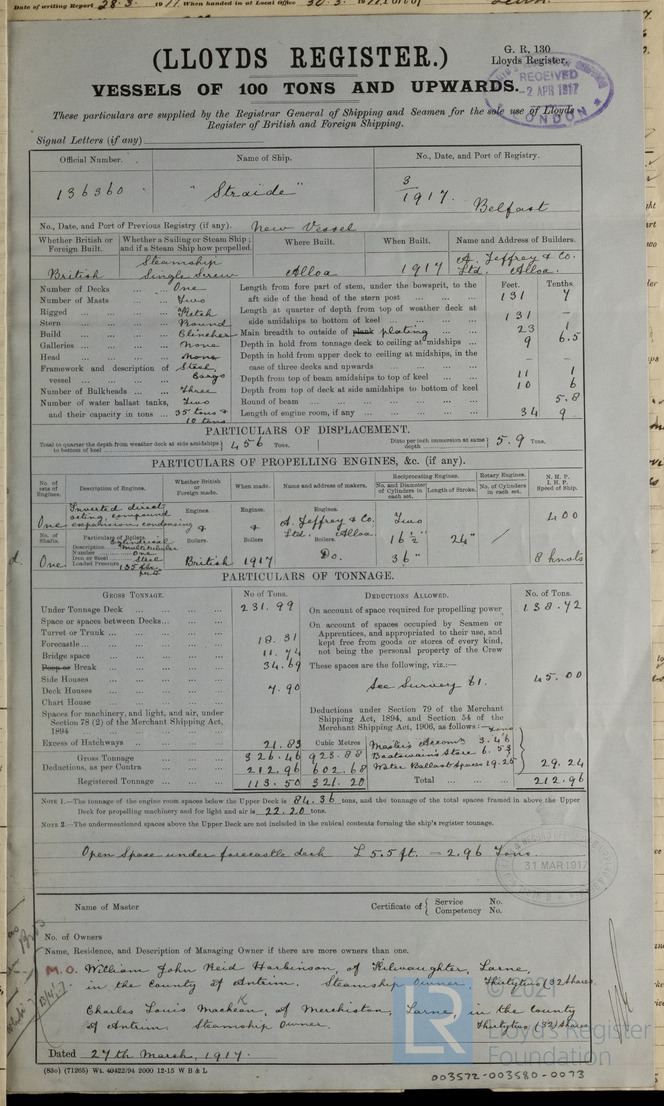 Date of writing Report 28.3. 1917 When handed in at Local Office 30.3. 1917
(LLOYDS REGISTER.)
G. R. 130
Lloyds Register.
RECEIVED
-2 APR 1917
LONDON
VESSELS OF 100 TONS AND UPWARDS.
These particulars are supplied by the Registrar General of Shipping and Seamen for the sole use of Lloyds
Register of British and Foreign Shipping.
Signal Letters (if any)
Official Number. Name of Ship. No., Date, and Port of Registry.
136360 "Straide" 3/1917. Belfast
No., Date, and Port of Previous Registry (if any). New Vessel
Whether British or Foreign Built. Whether a Sailing or Steam Ship; and if a Steam Ship how propelled. Where Built. When Built. Name and Address of Builders.
British Steamship Single Screw Alloa 1917 A. Jeffrey & Co. Ltd. Alloa.
Feet. Tenths.
Number of Decks One Length from fore part of stem, under the bowsprit, to the aft side of the head of the stern post 131 7
Number of Masts Two
Rigged Ketch Length at quarter of depth from top of weather deck at side amidships to bottom of keel 131 -
Stern Round
Build Clincher Main breadth to outside of plank plating 23 1
Galleries None Depth in hold from tonnage deck to ceiling at midships 9 6.5
Head None Depth in hold from upper deck to ceiling at midships, in the case of three decks and upwards - -
Framework and description of vessel Steel Cargo
Depth from top of beam amidships to top of keel 11 1
Number of Bulkheads Three Depth from top of deck at side amidships to bottom of keel 10 6
Number of water ballast tanks, and their capacity in tons Two 35 tons & 10 tons
Round of beam 5.8
Length of engine room, if any 34 9
PARTICULARS OF DISPLACEMENT.
Total to quarter the depth from weather deck at side amidships to bottom of keel 456 Tons. Ditto per inch immersion at same depth 5.9 Tons.
PARTICULARS OF PROPELLING ENGINES, &c. (if any).
No. of sets of Engines. Description of Engines. Whether British or Foreign made. When made. Name and address of makers. Reciprocating Engines. No. and Diameter of Cylinders in each set. Length of Stroke. Rotary Engines. No. of Cylinders in each set. N. H. P. I. H. P. Speed of Ship.
One Inverted direct acting, compound expansion condensing Engines. Engines. Engines. A. Jeffrey & Co. Ltd. Alloa. Two 16½" 24" / 400
No. of Shafts. Particulars of Boilers. Boilers. Boilers Boilers.
One Description Cylindrical Multitubular Number One Iron or Steel Steel Loaded Pressure British 1917 Do. 36" 8 knots
PARTICULARS OF TONNAGE.
GROSS TONNAGE. No of Tons. DEDUCTIONS ALLOWED. No. of Tons.
Under Tonnage Deck 231.99 On account of space required for propelling power 138.72
Space or spaces between Decks
Turret or Trunk
Forecastle 18.31
Bridge space 11.74
Poop or Break 34.69
Side Houses
Deck Houses 7.90
Chart House
Spaces for machinery, and light, and air, under Section 78 (2) of the Merchant Shipping Act, 1894
Excess of Hatchways 21.83
On account of spaces occupied by Seamen or Apprentices, and appropriated to their use, and kept free from goods or stores of every kind, not being the personal property of the Crew
These spaces are the following, viz.:—
See Survey 61. 45.00
Deductions under Section 79 of the Merchant Shipping Act, 1894, and Section 54 of the Merchant Shipping Act, 1906, as follows:—
Tons
Cubic Metres
Master's Accom 3.46
Boatswain's Store 6.53
Water Ballast Spaces 19.25
29.24
Gross Tonnage 326.46 923.88
Deductions, as per Contra 212.96 602.68
Registered Tonnage 113.50 321.20
Total 212.96
NOTE 1.—The tonnage of the engine room spaces below the Upper Deck is 84.36 tons, and the tonnage of the total spaces framed in above the Upper
Deck for propelling machinery and for light and air is 22.20 tons.
NOTE 2.—The undermentioned spaces above the Upper Deck are not included in the cubical contents forming the ship's register tonnage.
Open Space under forecastle deck L 5.5 ft. – 2.96 Tons.
31 MAR 1917
Name of Master Certificate of { Service No. Competency No.
No. of Owners
Name, Residence, and Description of Managing Owner if there are more owners than one.
M.O. William John Reid Harbinson, of Kilwaughter, Larne,
in the County of Antrim. Steamship Owner. Thirtytwo (32) Shares.
Charles Louis MacKean, of Merchiston, Larne, in the County
of Antrim Steamship Owner. Thirtytwo (32) Shares
Dated 27th March, 1917.
(830) (71265) Wt. 40422/94 2000 12-15 W B & L
LR
© 2021
Lloyd's Register
Foundation
003572-003580-0073